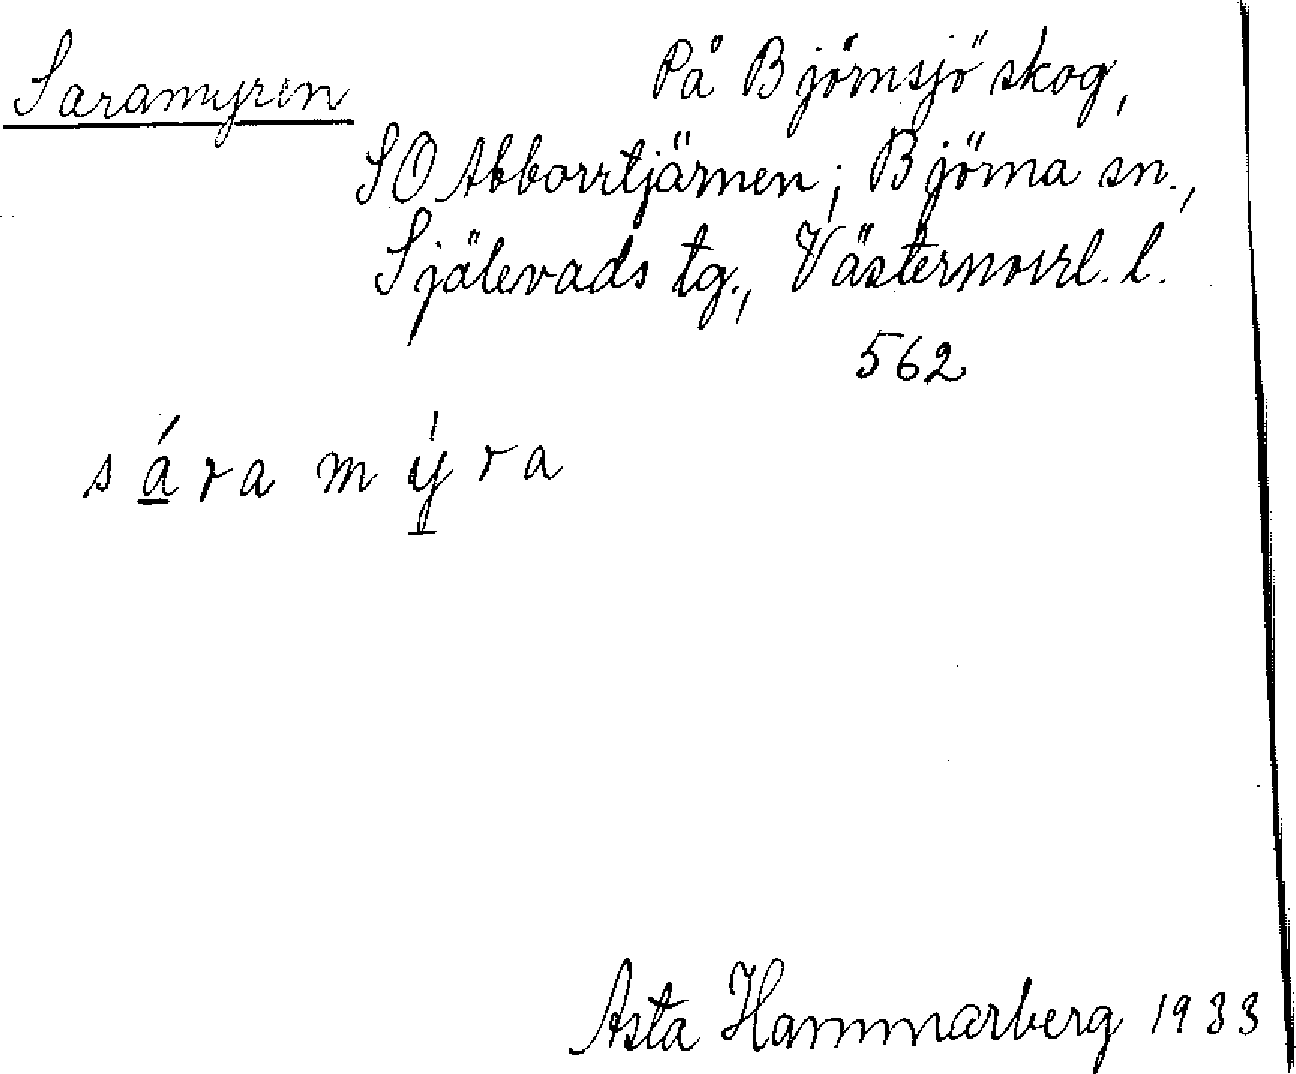 Saramyren
På Björnsjö skog,
SO Abborrtjärnen; Björna sn.,
Själevads tg., Västernorrl. l.
562
sá̱ra mý̱ra
Asta Hammarberg 1933